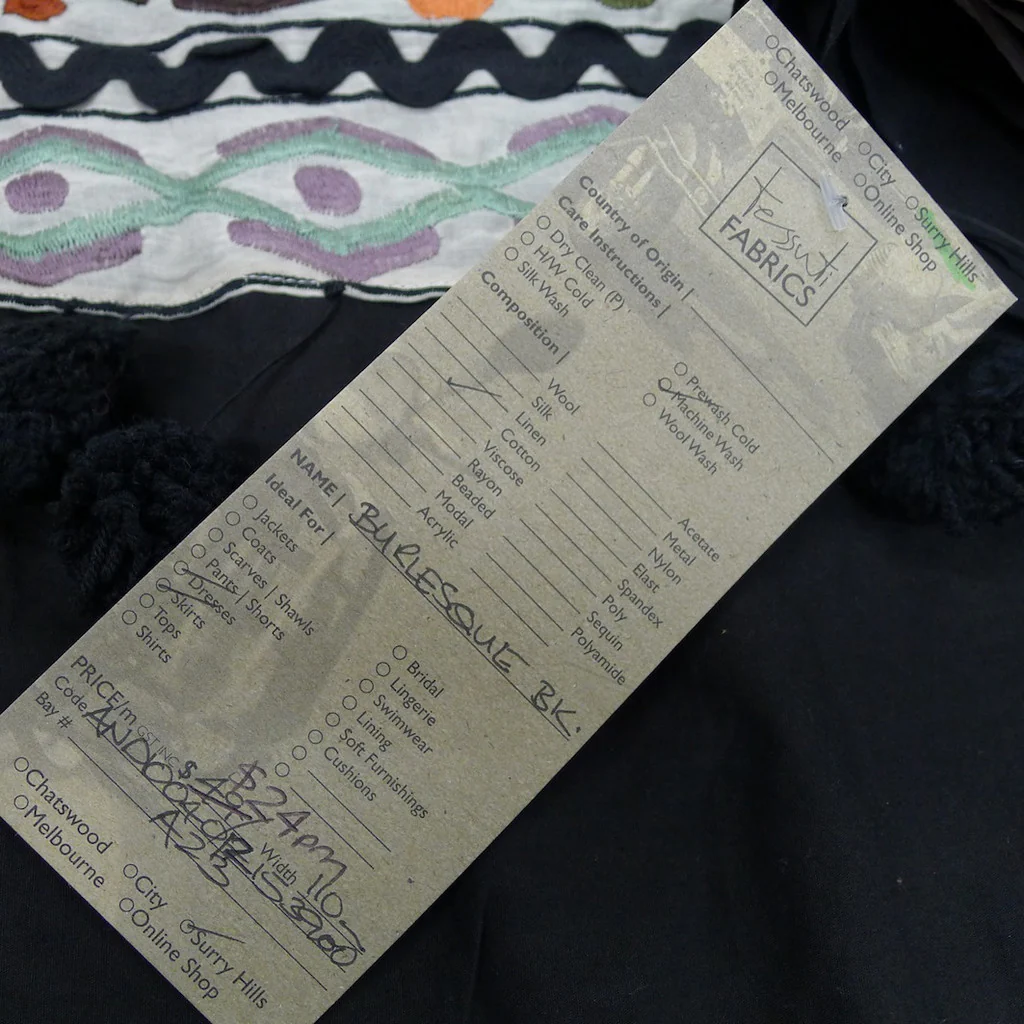 Chatswood
Melbourne
City
Online Shop
Surry Hills
Tessuti
FABRICS
Country of Origin |
Care Instructions |
Dry Clean (P)
H/W Cold
Silk Wash
Prewash Cold
Machine Wash
Wool Wash
Composition |
Wool
Silk
Linen
Cotton
Viscose
Rayon
Beaded
Modal
Acrylic
Acetate
Metal
Nylon
Elast
Spandex
Poly
Sequin
Polyamide
NAME | BURLESQUE BK.
Ideal For |
Jackets
Coats
Scarves | Shawls
Pants | Shorts
Dresses
Skirts
Tops
Shirts
Bridal
Lingerie
Swimwear
Lining
Soft Furnishings
Cushions
PRICE/m GST INC
$24pm
Code
Width 110
Bay # A23
Chatswood
Melbourne
City
Online Shop
Surry Hills